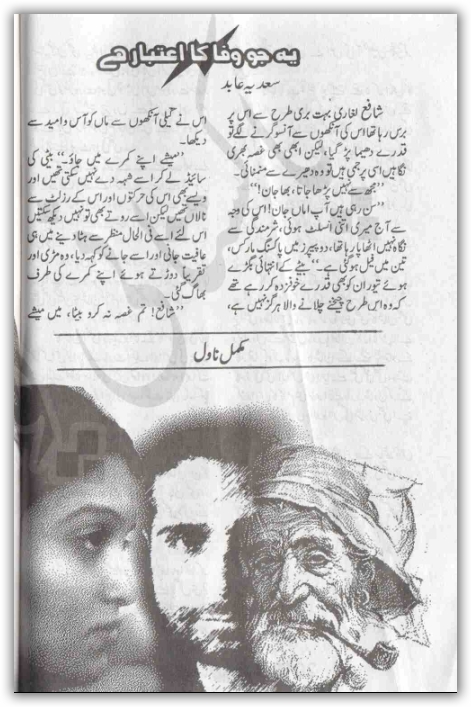 یہ جو وفا کا اعتبار ہے
سعدیہ عابد
شافع لغاری بہت بری طرح سے اس پر
برس رہا تھا اس کی آنکھوں سے آنسو گرنے لگے تو
قدرے دھیما پڑ گیا، لیکن ابھی بھی غصہ بھری
نگاہیں اسی پر جمی ہیں تو وہ دھیرے سے منمنائی۔
”مجھ سے نہیں پڑھا جاتا، بھا جان!“
”سن رہی ہیں آپ اماں جان! اس کی وجہ
سے آج میری اتنی انسلٹ ہوئی، شرمندگی سے
نگاہ نہیں اٹھا پا رہا تھا، دو پیپرز میں پاسنگ مارکس،
تین میں فیل ہو گئی ہے۔“ بیٹے کے انتہائی بگڑے
ہوئے تیور ان کو بھی قدرے خوفزدہ کر رہے تھے
کہ وہ اس طرح چیخنے چلانے والا ہرگز نہیں ہے،
اس نے گیلی آنکھوں سے ماں کو آس و امید سے
دیکھا۔
”میشے اپنے کمرے میں جاؤ۔“ بیٹی کی
سائیڈ لے کر اسے شہہ دے نہیں سکتی تھیں اور
ویسے بھی اس کی حرکتوں اور اس کے رزلٹ سے
نالاں تھیں لیکن اسے روتے بھی تو نہیں دیکھ سکتیں
اس لئے اسے فی الحال منظر سے ہٹا دینے میں ہی
عافیت جانی اور اسے جانے کو کہہ دیا، وہ مڑی اور
تقریباً دوڑتے ہوئے اپنے کمرے کی طرف
بھاگ گئی۔
”شافع! تم غصہ نہ کرو بیٹا، میں میشے
مکمل ناول